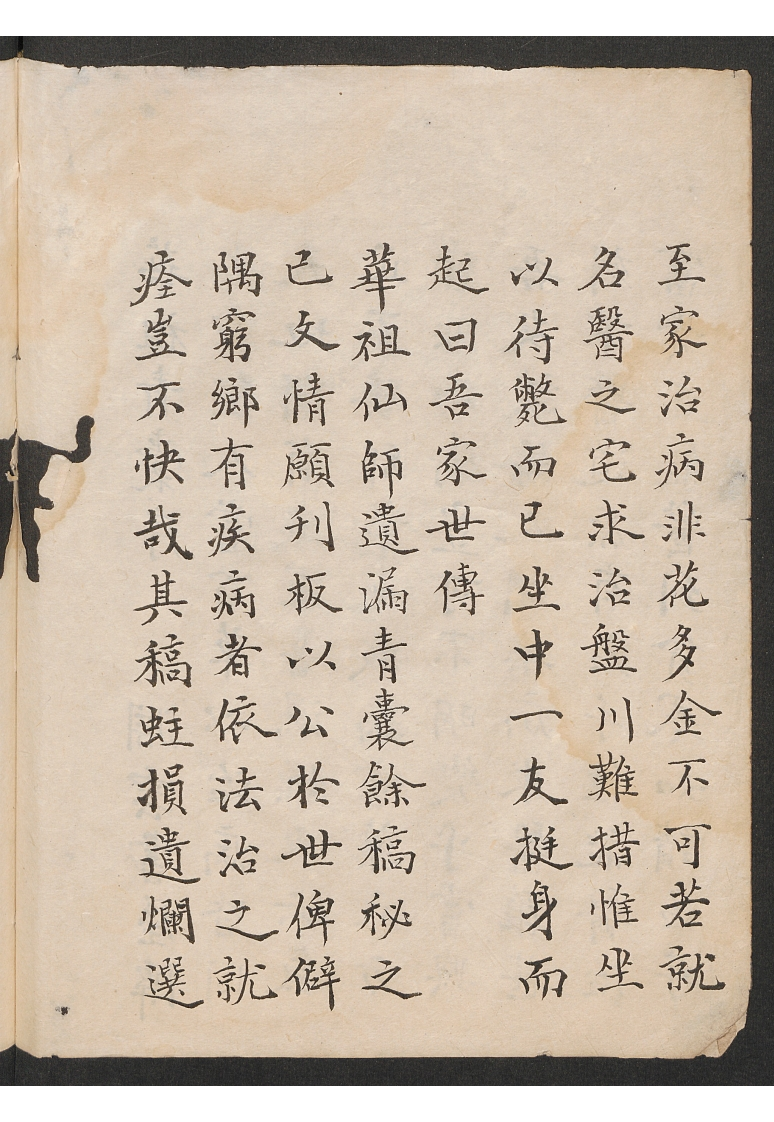 至家治病非花多金不可若就
名醫之宅求治盤川難措惟坐
以待斃而已坐中一友挺身而
起曰吾家世傳
華祖仙師遺漏青囊餘稿秘之
已文情願刊板以公於世俾僻
隅窮鄉有疾病者依法治之就
痊豈不快哉其稿蛀損遺爛選